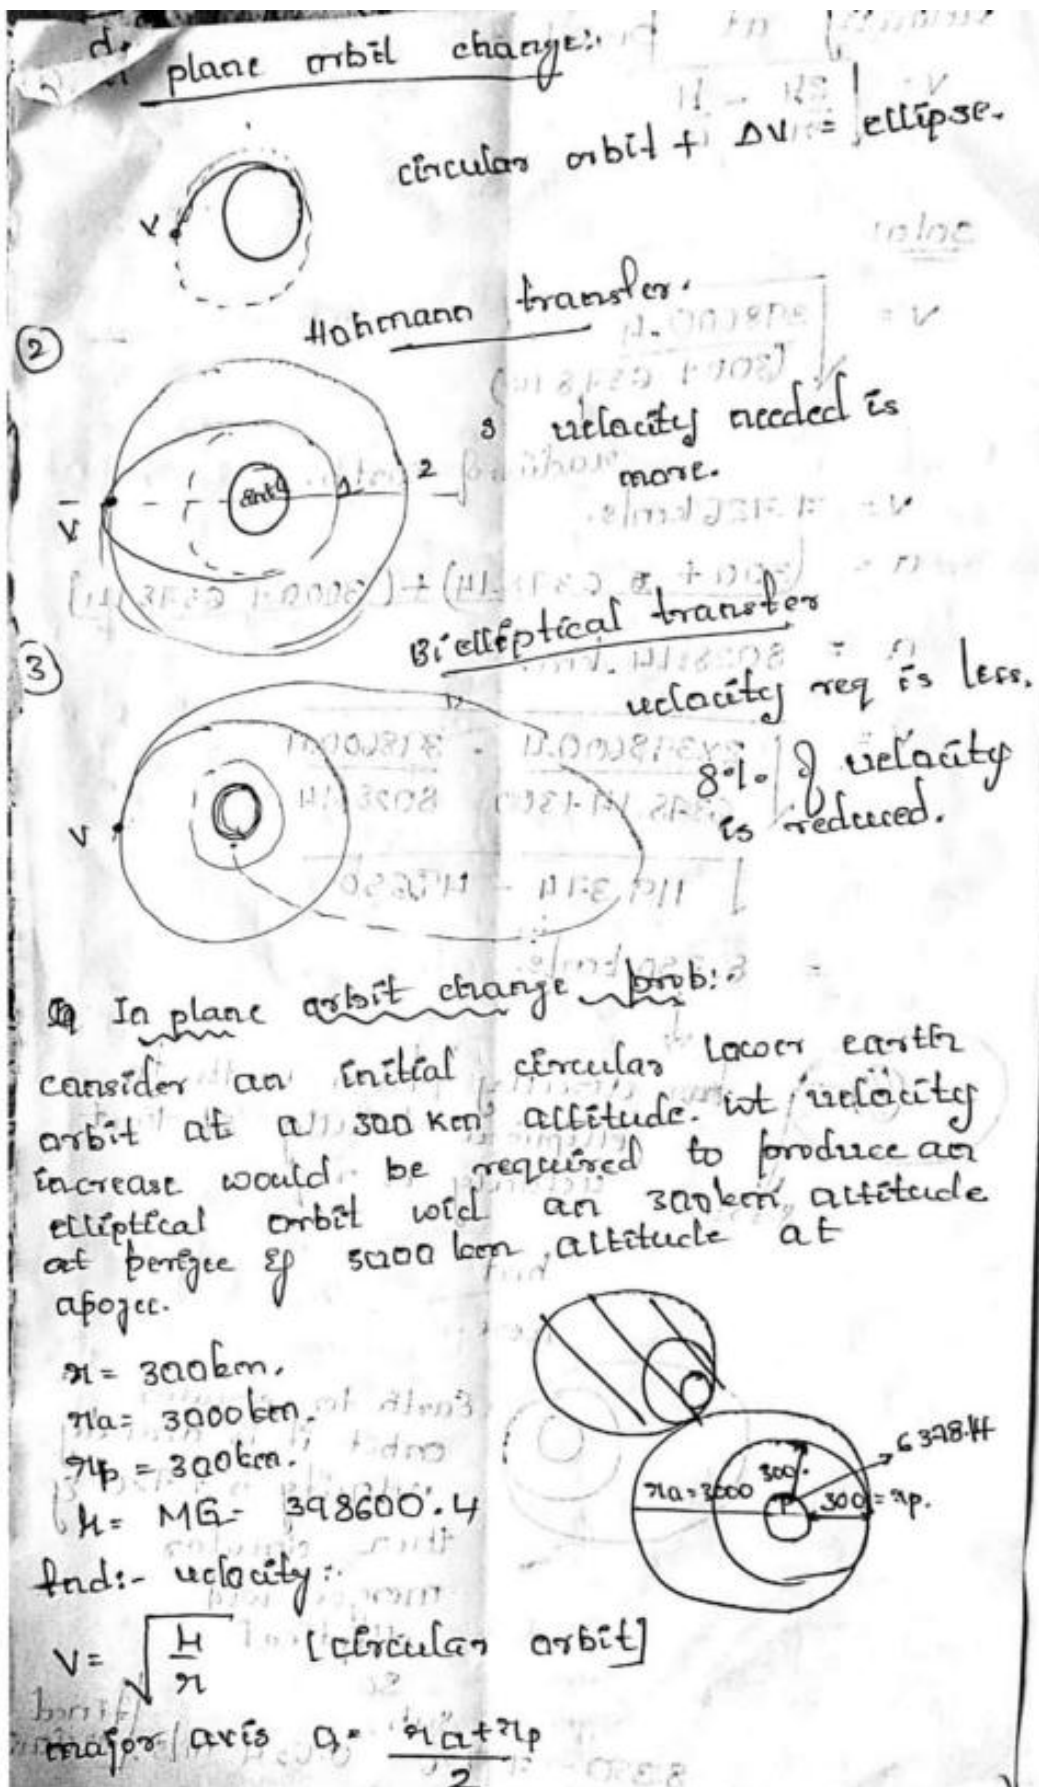 plane orbit change:-
circular orbit + ΔV = ellipse.
V
② Hohmann transfer.
velocity needed is
more.
earth 1 2
V
③ Bi elliptical transfer
velocity req is less.
8% of velocity
is reduced.
V
In plane orbit change prob:-
consider an initial circular lower earth
orbit at a 300 km altitude. wt velocity
increase would be required to produce an
elliptical orbit wid an 300km altitude
at perigee & 3000 km altitude at
apogee.
r = 300km.
ra = 3000km.
rp = 300km.
μ = MG = 398600.4
6378.14
300.
ra = 3000
300 = rp.
find:- velocity:-
V = √μ/r [circular orbit]
major axis a = ra+rp
2